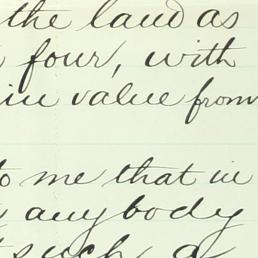 the land as
four, with
in value from
to me that in
anybody
such a